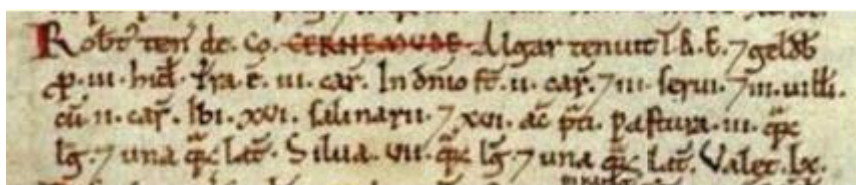 Robt̄ ten̄ de. Co. CERNEMUDE. Algar tenuit T.R.E. ⁊ geldb̄
ꝑ. iii. hid̄. Tra ē. iii. car̄. In dn̄io st̄. ii. car̄. ⁊ iii. serui. ⁊ iii. uilli.
cū ii. car̄. Ibi. xvi. salinarii. ⁊ xvi. ac̄ p̄ti. Pastura. iii. qrc̄
lḡ. ⁊ una qrc̄ lat̄. Silua. vii. qrc̄ lḡ. ⁊ una qrc̄ lat̄. Valet lx.